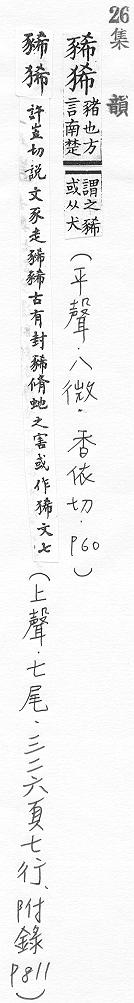 26集韻
豨狶豬也方言南楚謂之豨或从犬(平聲．八微．香依切．P60)
豨狶許豈切說文豕走豨豨古有封豨脩虵之害或作狶文七(上聲．七尾．三二六頁七行、附錄P811)